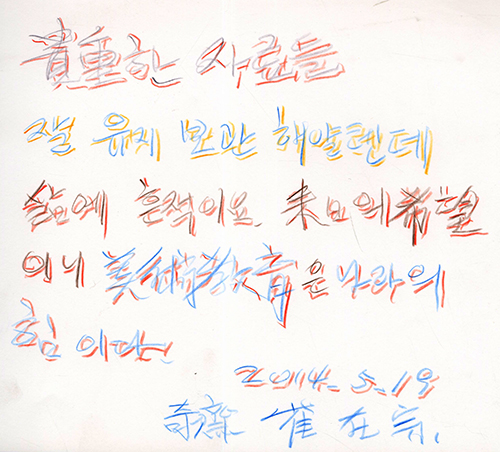 貴重한 사료들
잘 유지 보관 해야할텐데
삶에 흔적이요. 未來의 希望
이니 美術敎育은 나라의
힘 이다.
2014. 5. 19
奇齋 崔在